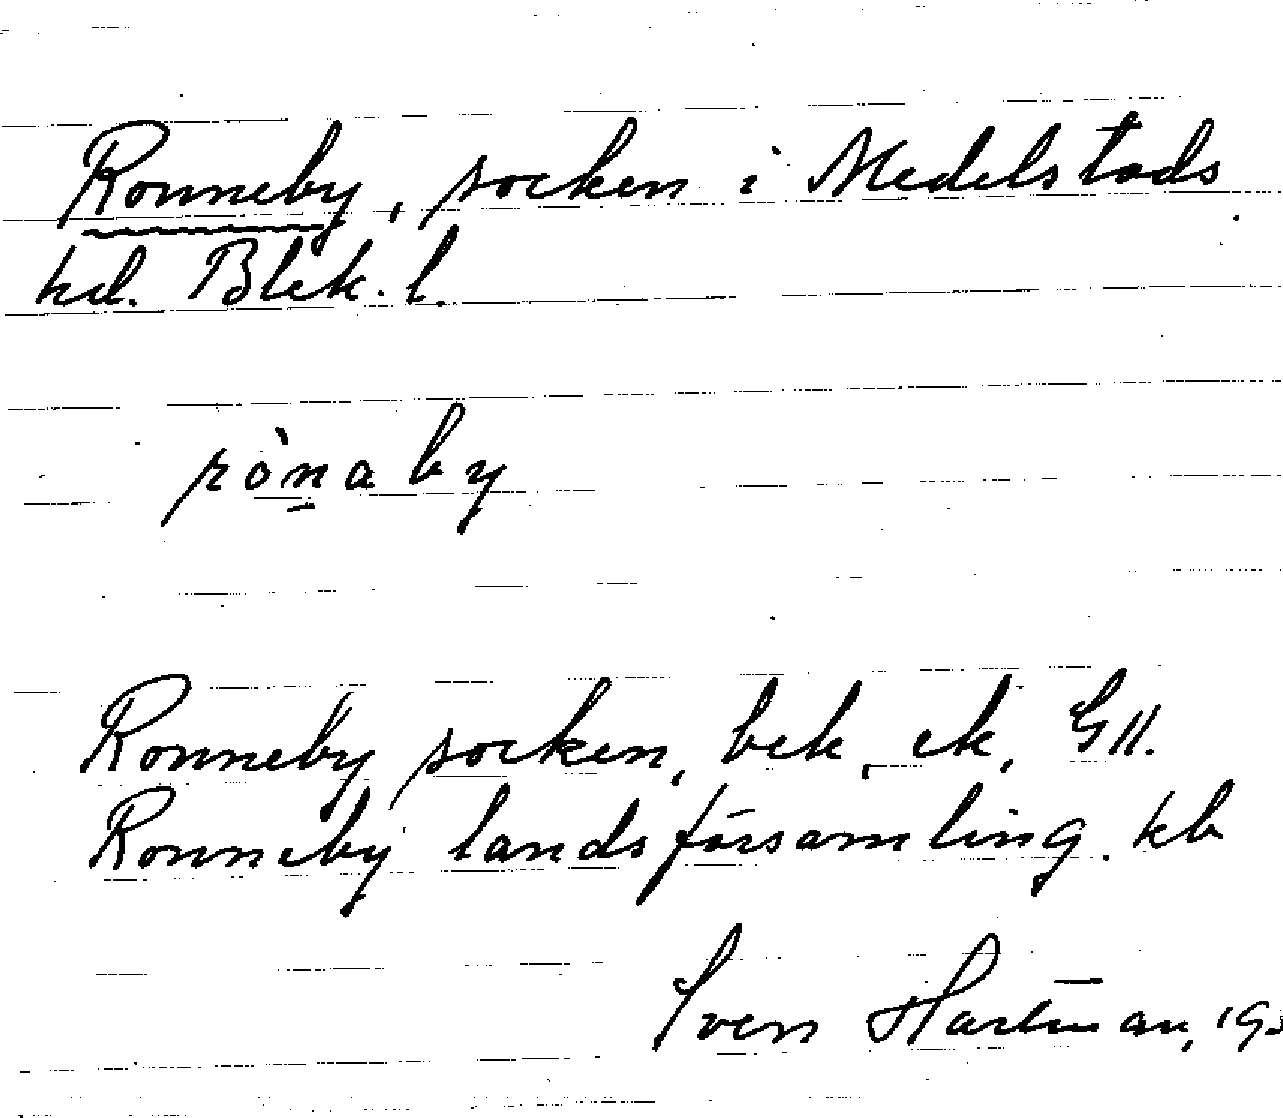 Ronneby, socken i Medelstads
hd. Blek. l.
rònaby
Ronneby socken, bek, ek, GK.
Ronneby landsförsamling. kb
Sven Hartman, 19